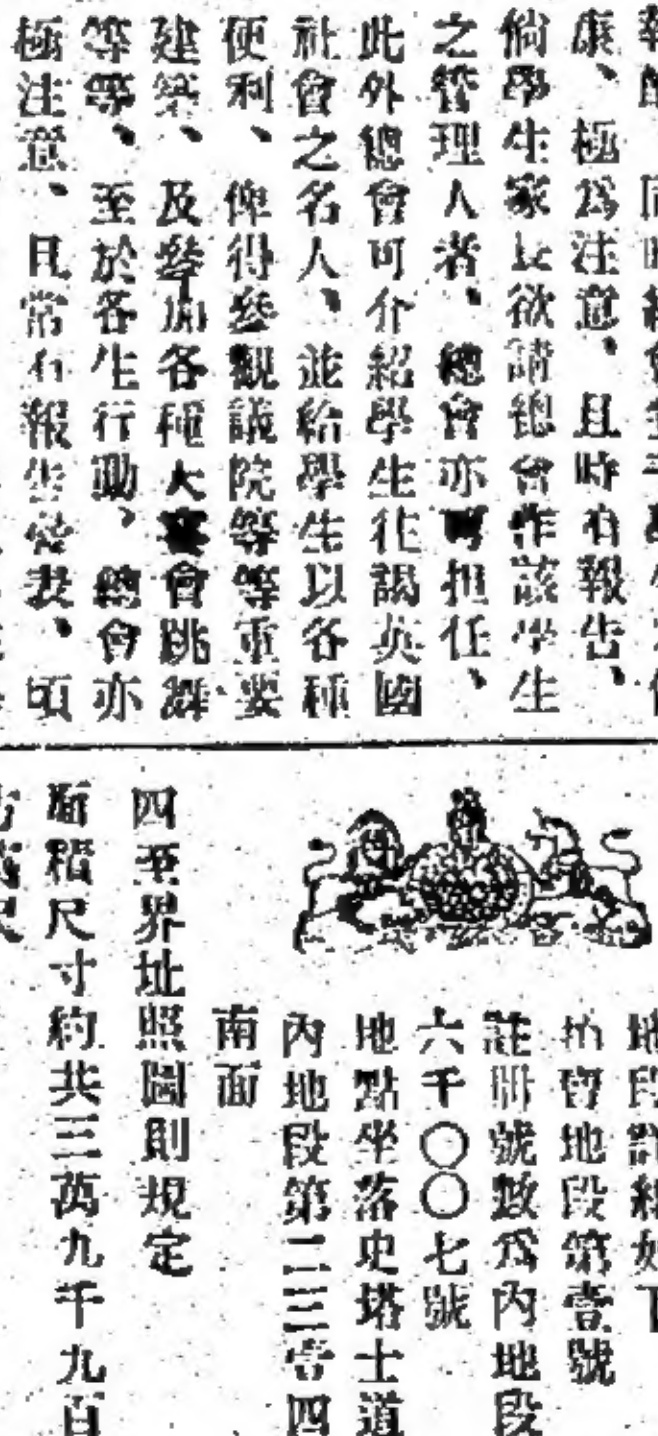 康、極爲注意、且時有報告、
倘學生家長欲請總會作該學生
之管理人者、總會亦可担任、
此外總會可介紹學生往謁英國
社會之名人、並給學生以各種
便利、俾得參觀議院等等重要
建築、及參加各種大賽會跳舞
等等、至於各生行動、總會亦
極注意、且常有報告發表、頃
地段詳細如下
拍賣地段第壹號
註冊號數爲內地段
六千〇〇七號
地點坐落史塔士道
內地段第二三壹四
南面
四至界址照圖則規定
面積尺寸約共三萬九千九百